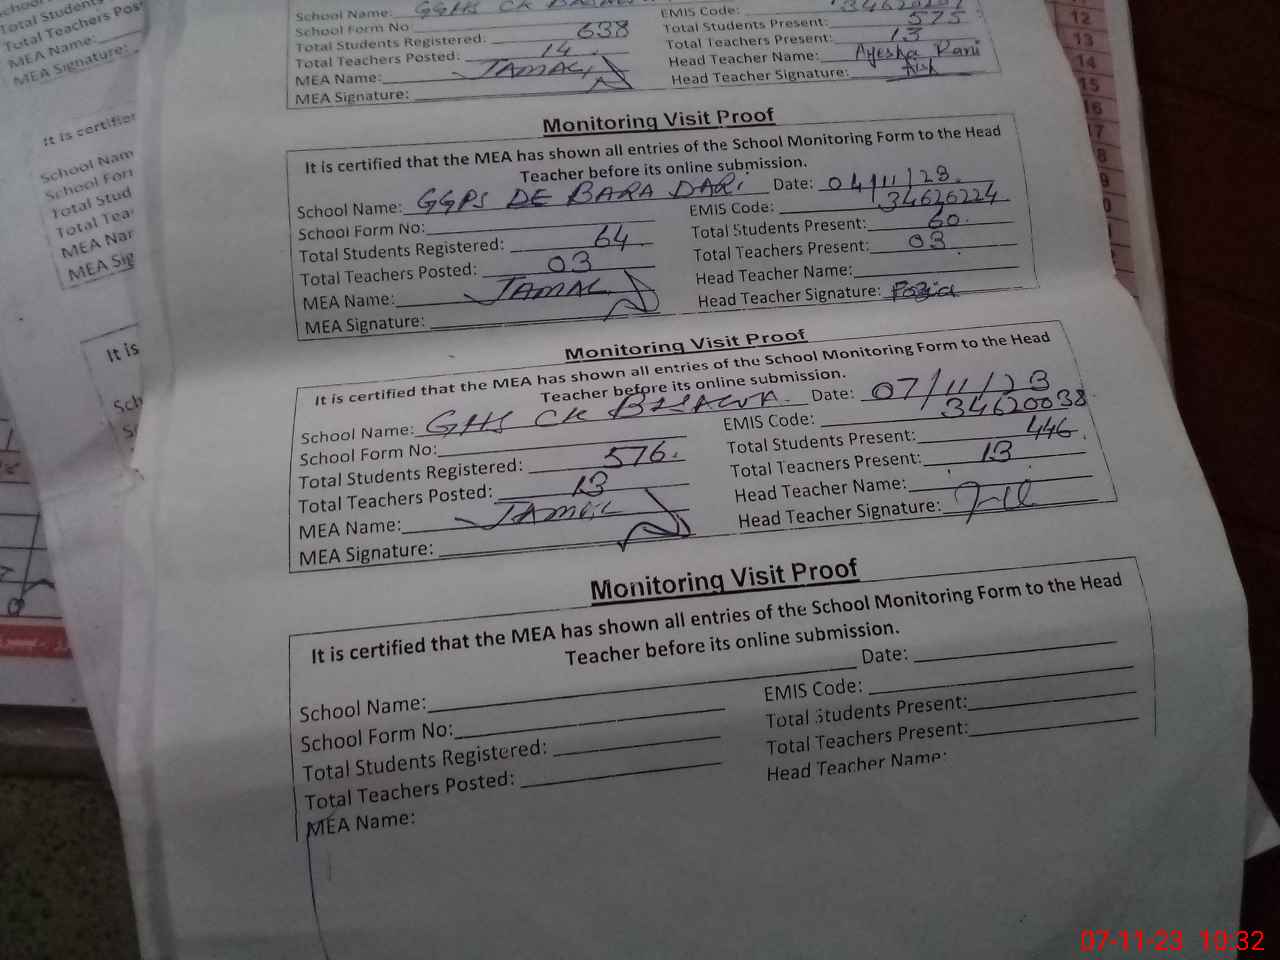 School Name: GGHS CK
School Form No
EMIS Code:
Total Students Registered: 638
Total Students Present: 575
Total Teachers Posted: 14
Total Teachers Present: 13
MEA Name: JAMAL
Head Teacher Name: Ayesha Rani
MEA Signature:
Head Teacher Signature:
Monitoring Visit Proof
It is certified that the MEA has shown all entries of the School Monitoring Form to the Head
Teacher before its online submission.
School Name: GGPS DE BARA DARI Date: 04/11/23.
School Form No: EMIS Code: 34620224
Total Students Registered: 64 Total Students Present: 60.
Total Teachers Posted: 03 Total Teachers Present: 03
MEA Name: JAMAL Head Teacher Name:
MEA Signature: Head Teacher Signature: Fozia
Monitoring Visit Proof
It is certified that the MEA has shown all entries of the School Monitoring Form to the Head
Teacher before its online submission.
School Name: GHS CK Date: 07/11/23
School Form No: EMIS Code: 34620038
Total Students Registered: 576. Total Students Present: 446.
Total Teachers Posted: 13 Total Teachers Present: 13
MEA Name: JAMAL Head Teacher Name:
MEA Signature: Head Teacher Signature:
Monitoring Visit Proof
It is certified that the MEA has shown all entries of the School Monitoring Form to the Head
Teacher before its online submission.
School Name: Date:
School Form No: EMIS Code:
Total Students Registered: Total Students Present:
Total Teachers Posted: Total Teachers Present:
MEA Name: Head Teacher Name:
Total Students
Total Teachers
MEA Name:
MEA Signature:
It is
School
School
Total Stud
MEA
MEA
It is
12
13
14
15
07-11-23 10:32